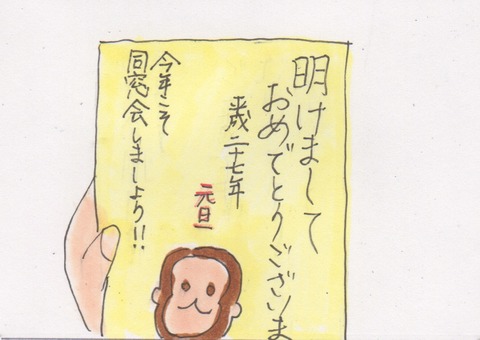 明けまして
おめでとうございま
平成二十七年
元旦
今年こそ
同窓会しましょう!!